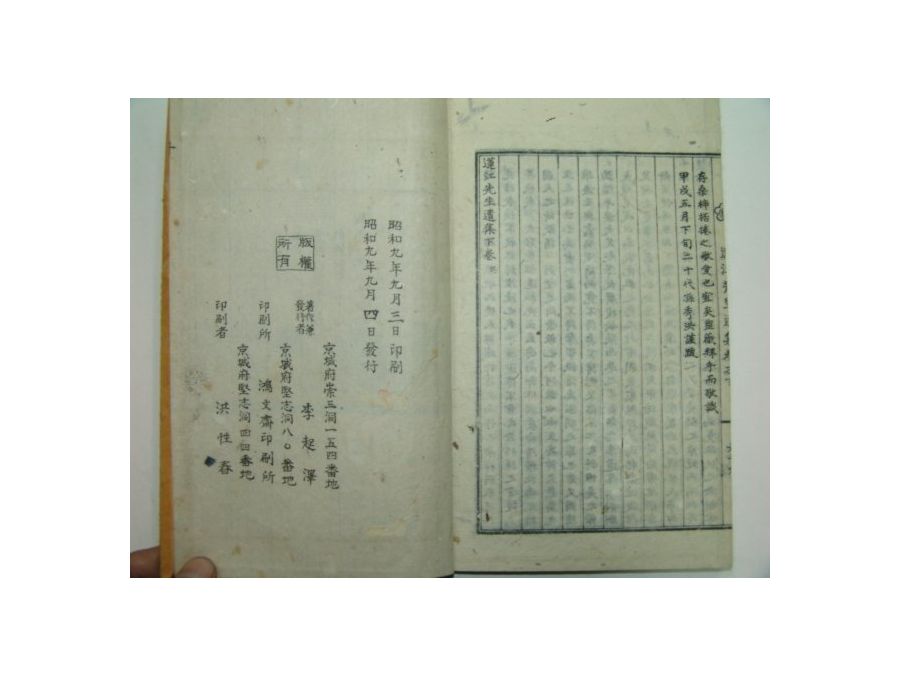 存桑梓捂捲之敬愛也宜矣盥薇擇手而敬識
甲戌五月下旬二十代孫李洪謹跋
遁江先生遺集下卷
昭和九年九月三日印刷
昭和九年九月四日發行
版權
所有
京城府崇三洞一五四番地
著作兼
發行者
李起澤
京城府堅志洞八〇番地
印刷所
鴻文齋印刷所
京城府堅志洞四四番地
印刷者
洪性春